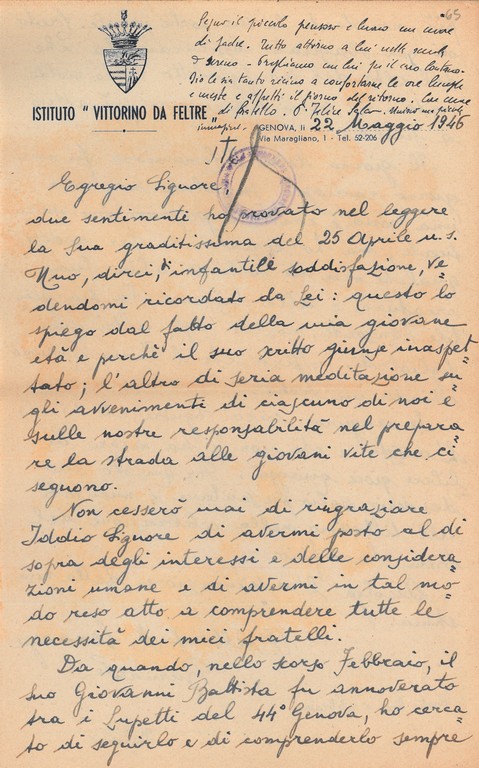 65
Seguo il piccolo pensoso e buono con cuore
di padre. Tutto attorno a lui nelle scuole
è sereno - Preghiamo con lui per il caro lontano.
Dio le sia tanto vicino a confortarne le ore lunghe
e meste e affretti il giorno del ritorno. Con cuore
di fratello. P. Felice
ISTITUTO " VITTORINO DA FELTRE "
GENOVA, li 22 Maggio 1946
Via Maragliano, 1 - Tel. 52-206
Egregio Signore,
due sentimenti ho provato nel leggere
la Sua graditissima del 25 Aprile u.s.
Uno, direi, di infantile soddisfazione, ve=
dendomi ricordato da Lei: questo lo
spiego dal fatto della mia giovane
età e perchè il suo scritto giunse inaspet=
tato; l'altro di seria meditazione su=
gli avvenimenti di ciascuno di noi e
sulle nostre responsabilità nel prepara=
re la strada alle giovani vite che ci
seguono.
Non cesserò mai di ringraziare
Iddio Signore di avermi posto al di
sopra degli interessi e delle considera=
zioni umane e di avermi in tal mo=
do reso atto a comprendere tutte le
necessità dei miei fratelli.
Da quando, nello scorso Febbraio, il
suo Giovanni Battista fu annoverato
tra i Lupetti del 44° Genova, ho cerca=
to di seguirlo e di comprenderlo sempre